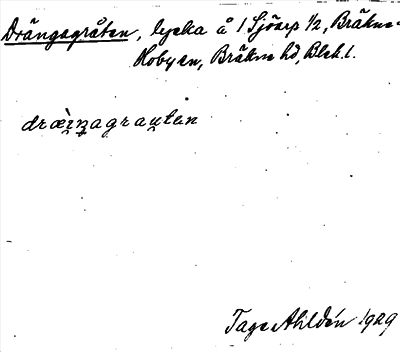 Drängagråten, lycka å 1 Sjöarp 1/2, Bräkne-
Hoby sn, Bräkne hd, Blek. l.
dræ̀i̯ŋagrau̯ten
Tage Ahldén 1929